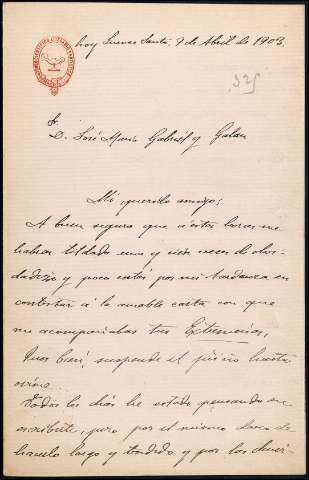 hoy Jueves Santo, 9 de Abril de 1903.
325
Sr.
D. José María Gabriel y Galan
Mi querido amigo:
A buen seguro que a estas horas me
habras tildado una y cien veces de olvi-
dadizo y poco cortés por mi tardanza en
contestar á la amable carta con que
me acompañabas tus Extremeñas,
Pues bien, suspende el juicio hasta
oirme...
Todos los días he estado pensando en
escribirte, pero por el mismo deseo de
hacerlo largo y tendido y por los